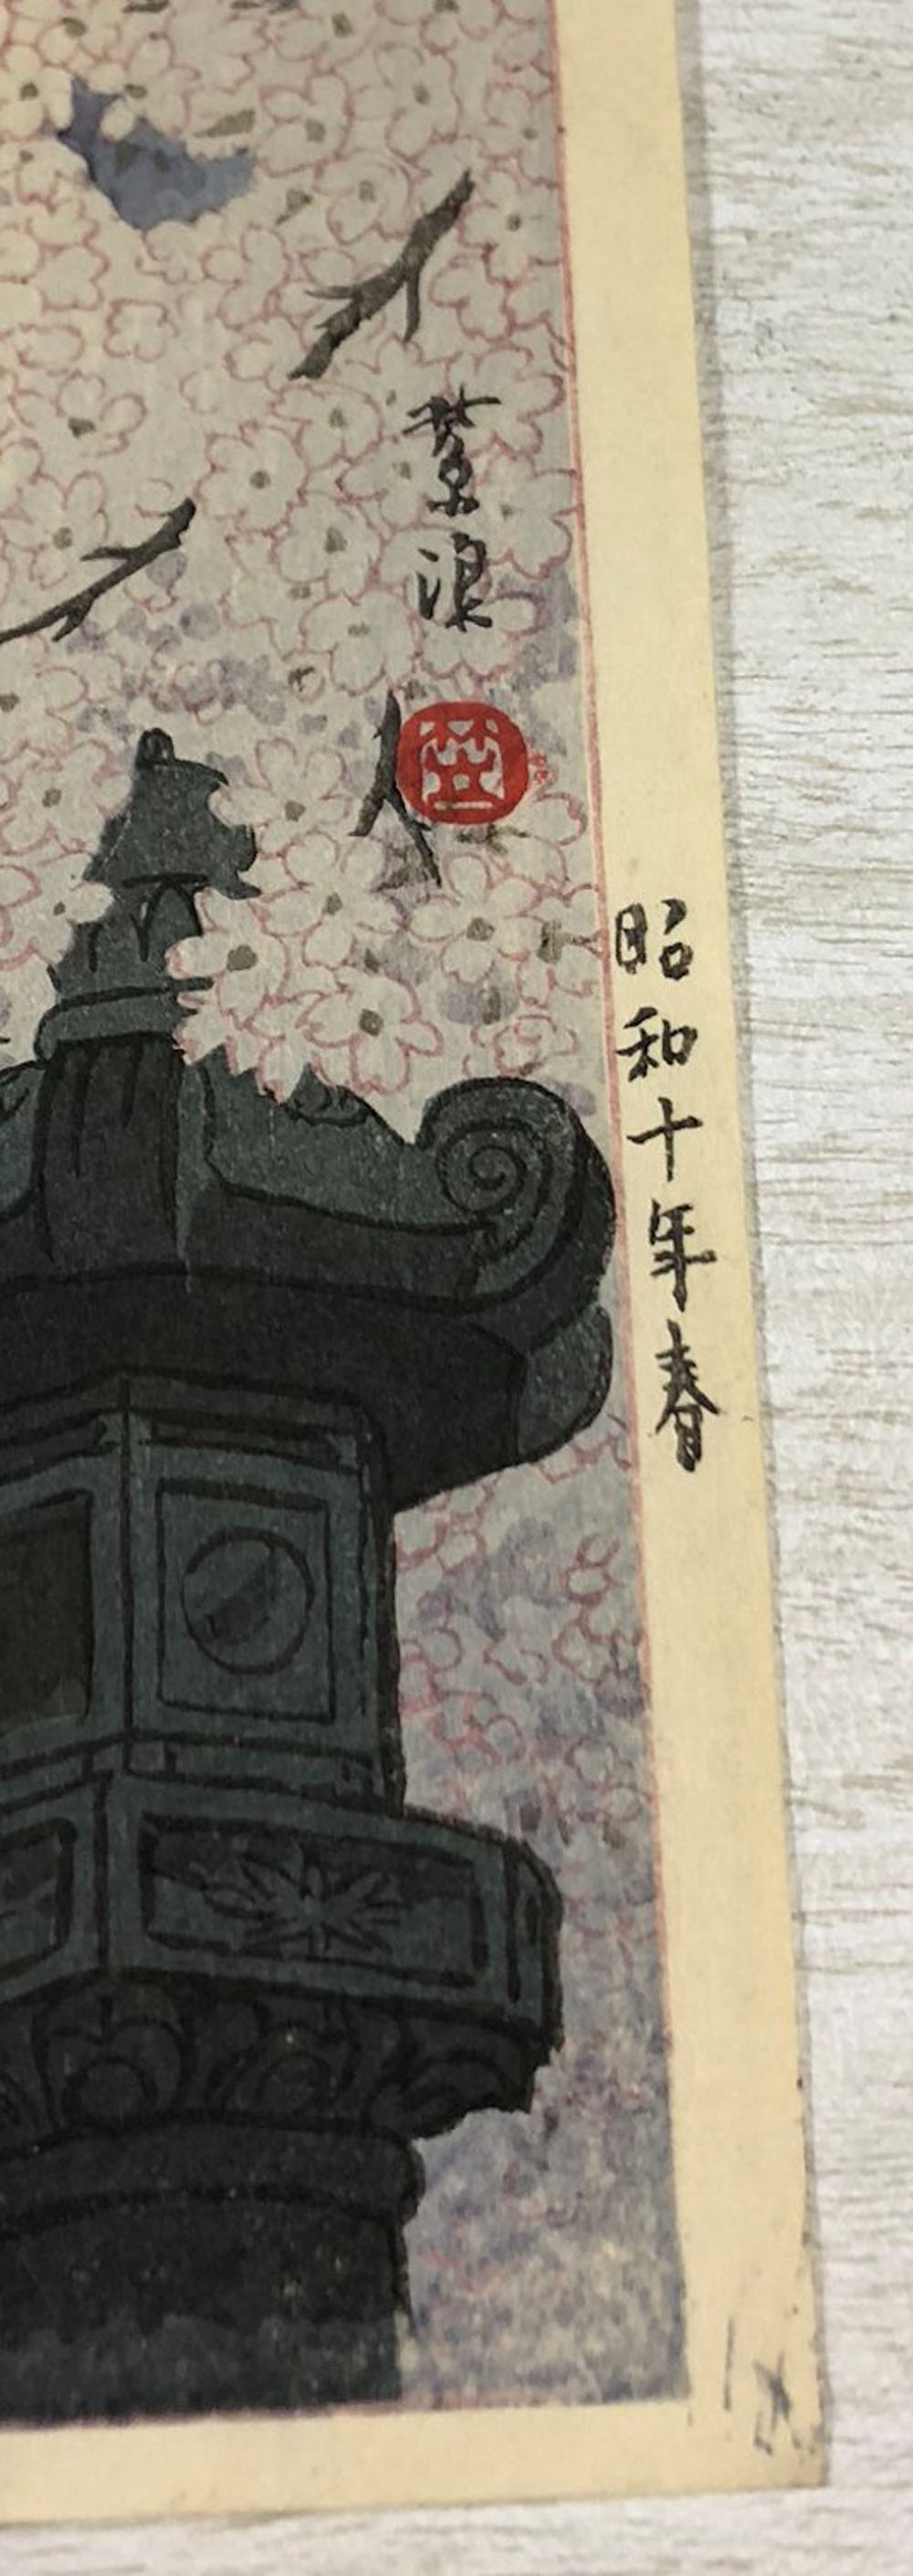 昭和十年春
紫浪
笠